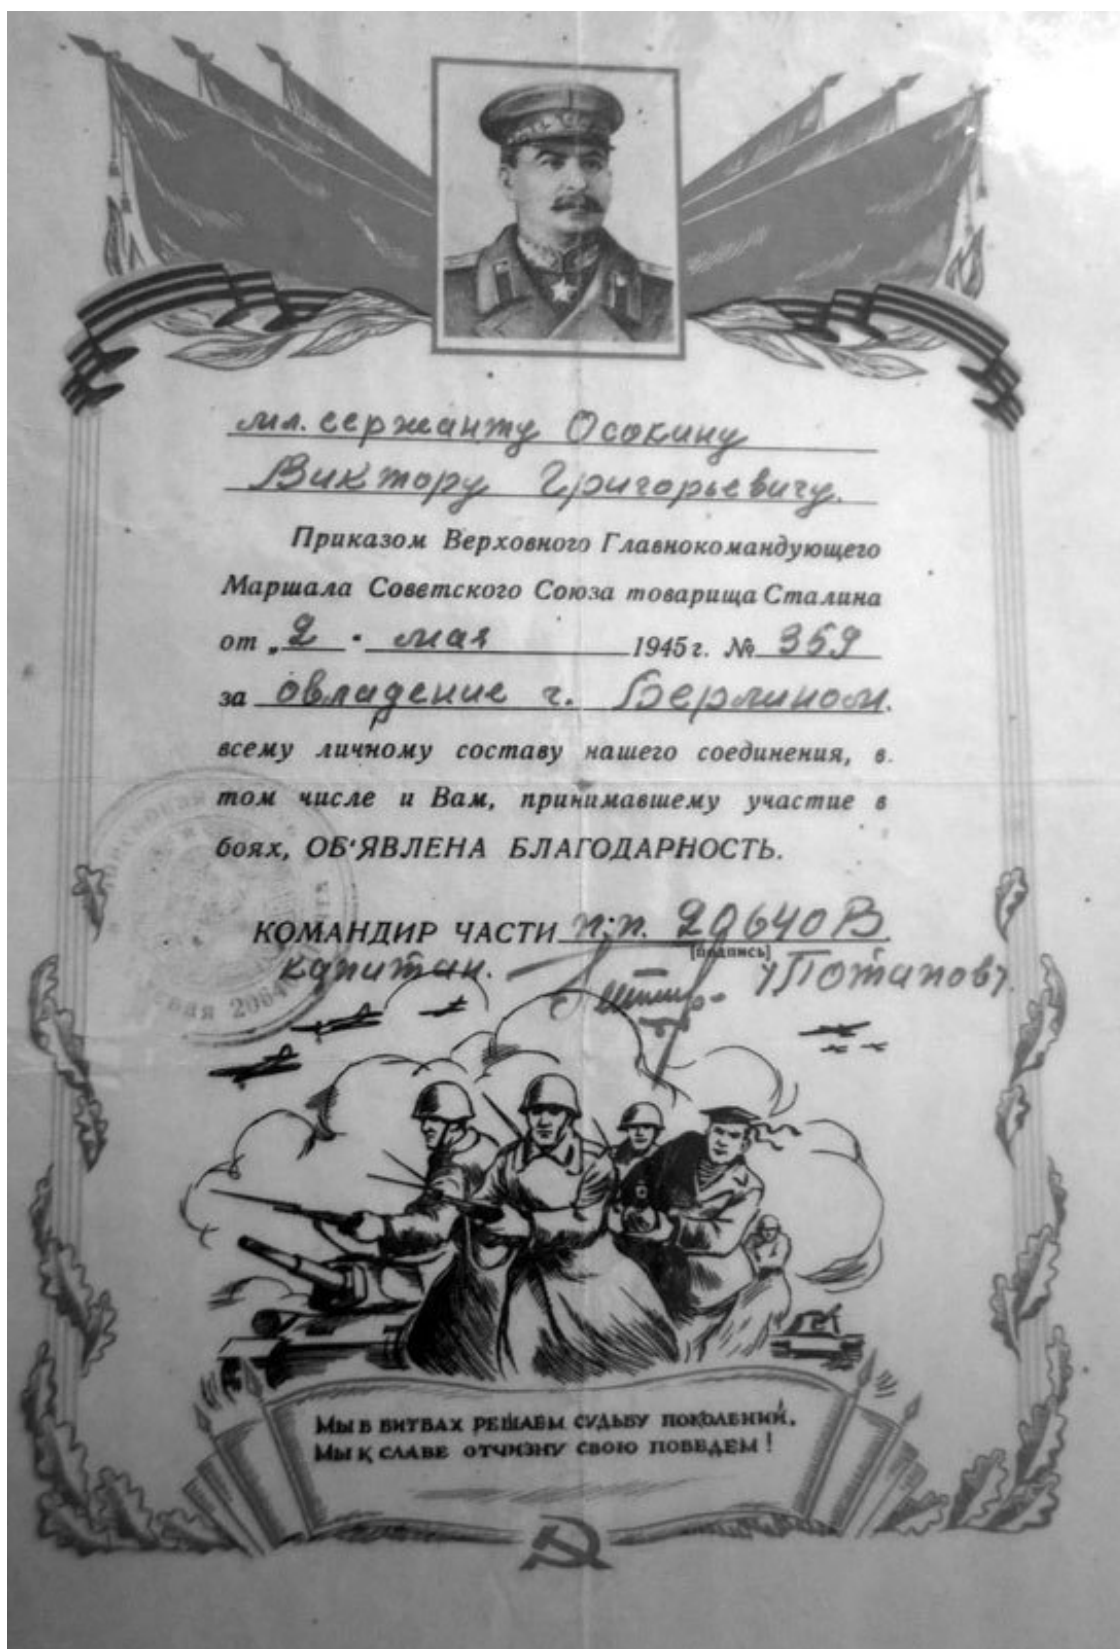 мл. сержанту Осокину
Виктору Григорьевичу.
Приказом Верховного Главнокомандующего
Маршала Советского Союза товарища Сталина
от „2 " мая 1945 г. № 359
за овладение г. Берлином.
всему личному составу нашего соединения, в
том числе и Вам, принимавшему участие в
боях, ОБ'ЯВЛЕНА БЛАГОДАРНОСТЬ.
КОМАНДИР ЧАСТИ п.п. 20640 В
[подпись]
капитан. /Потапов/
МЫ В БИТВАХ РЕШАЕМ СУДЬБУ ПОКОЛЕНИЙ,
МЫ К СЛАВЕ ОТЧИЗНУ СВОЮ ПОВЕДЕМ!